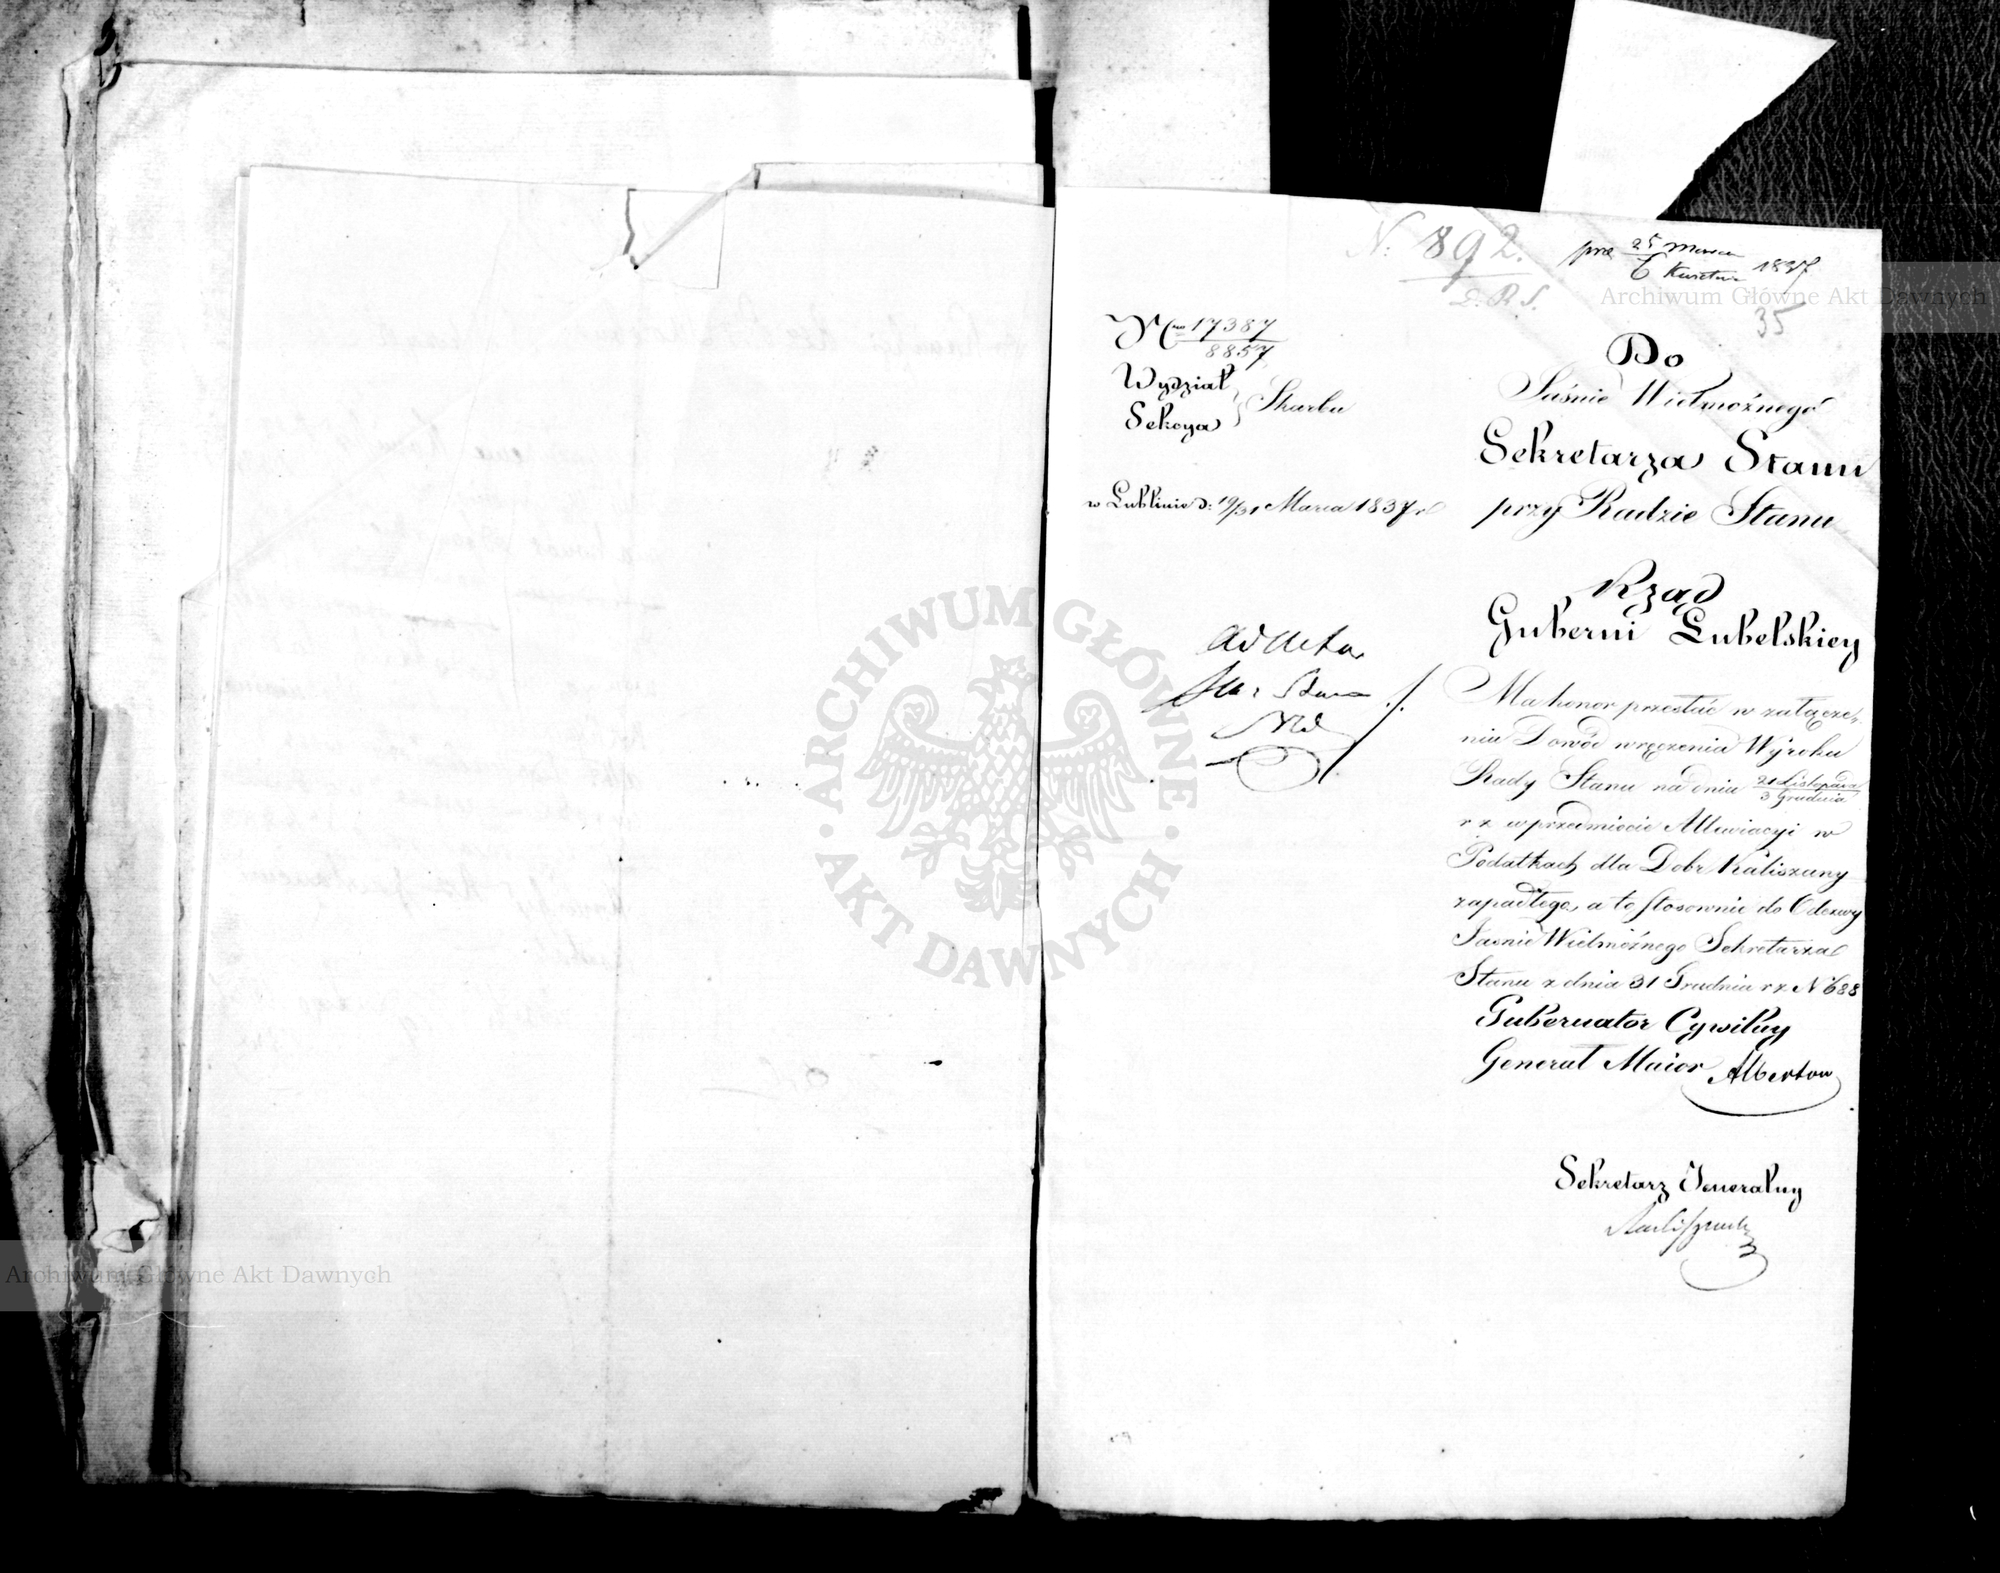 N. 892.
D. R. S.
prez 25 Marca / 6 Kwietnia 1837
35
Nro 17387 / 8857
Wydział
Sekcya
Skarbu
w Lublinie d: 19/31 Marca 1837 r
Do
Jaśnie Wielmożnego
Sekretarza Stanu
przy Radzie Stanu
Rząd
Guberni Lubelskiey
ad acta
Ma honor przesłać w załącze-
niu Dowód wręczenia Wyroku
Rady Stanu na dniu 21 Listopada / 3 Grudnia
r z w przedmiocie Allewiacyi w
Podatkach dla Dobr Kaliszany
zapadłego, a to stosownie do Odezwy
Jaśnie Wielmożnego Sekretarza
Stanu z dnia 31 Grudnia r z N 688
Gubernator Cywilny
Generał Maior Albertow
Sekretarz Jeneralny
Archiwum Główne Akt Dawnych
Archiwum Główne Akt Dawnych
ARCHIWUM GŁÓWNE AKT DAWNYCH